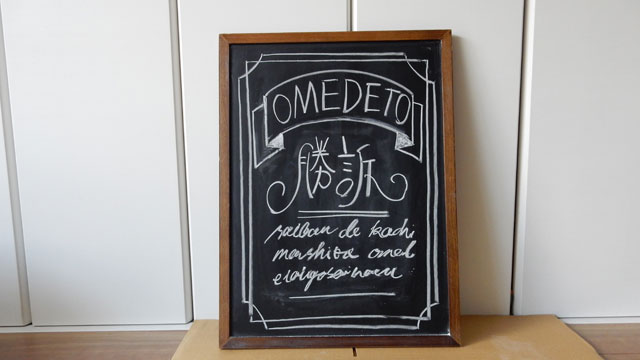 OMEDETO
勝訴
saiban de kachi
mashita omed
etaigosaimasu